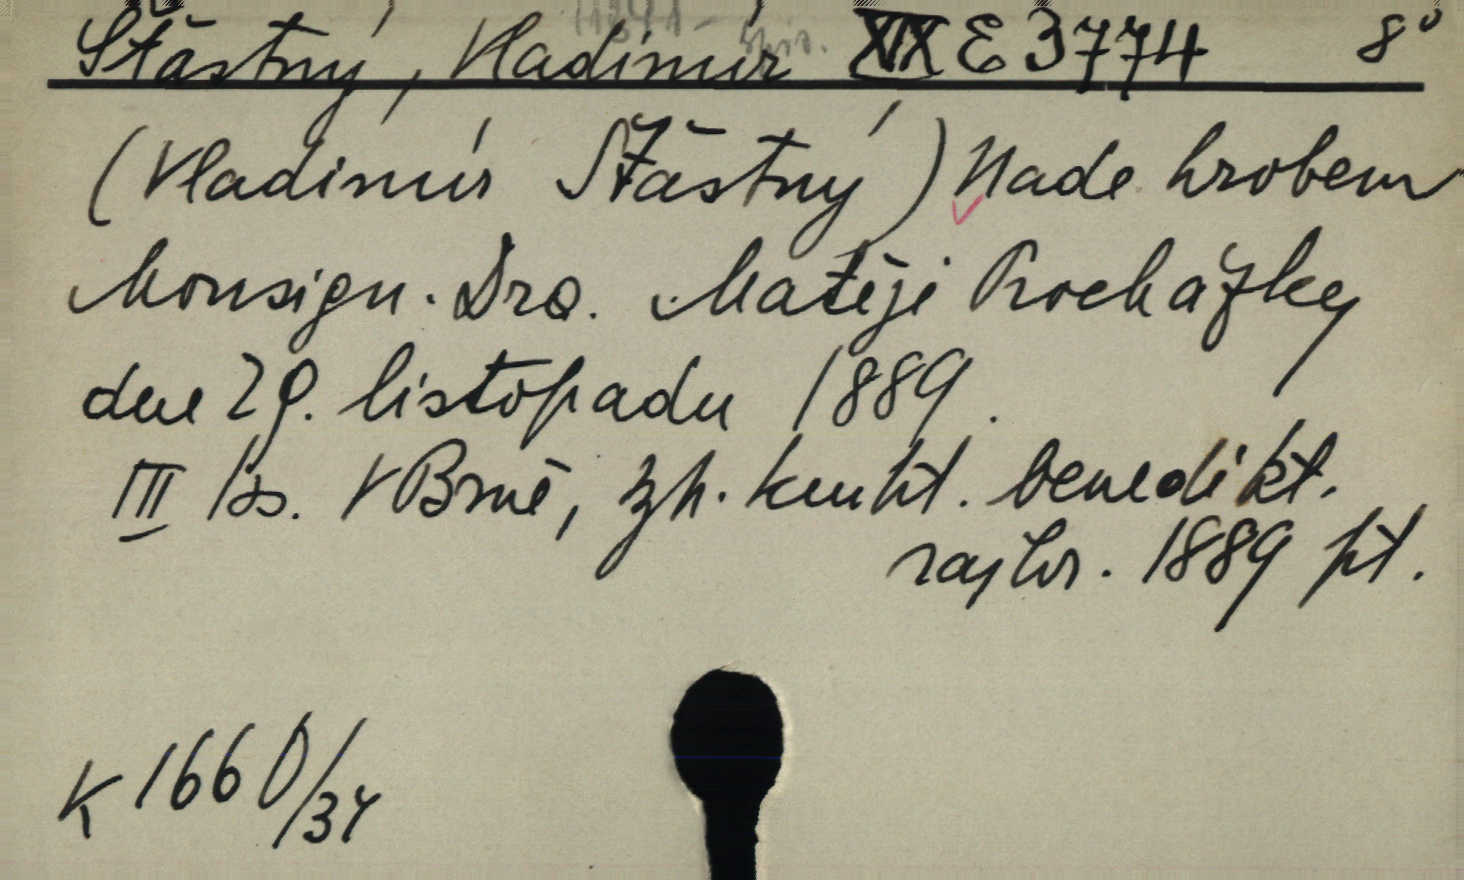 Šťastný, Vladimír XIX E 3774 8°
(Vladimír Šťastný) Nade hrobem
Monsign. Dra. Matěje Procházky
dne 29. listopadu 1889.
III 1s. V Brně, kh. kniht. benedikt.
rajhr. 1889 pt.
K 1660/34